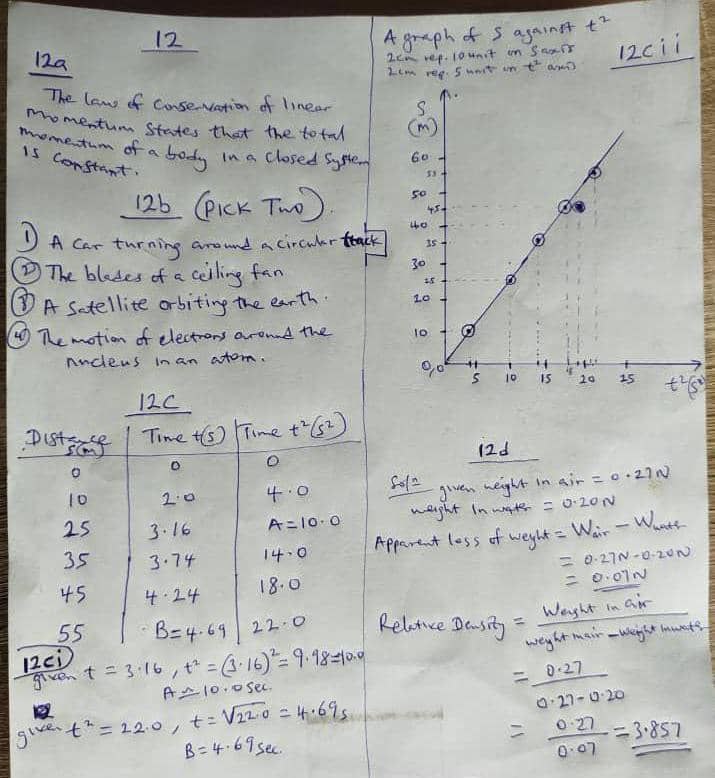 12
12a
The law of Conservation of linear
momentum states that the total
momentum of a body in a closed System
is Constant.
12b (PICK TWO).
1) A car turning around a circular track
(2) The blades of a ceiling fan
(3) A Satellite orbiting the earth.
(4) The motion of electrons around the
nucleus in an atom.
12C
Distance s(m) | Time t(s) | Time t²(s²)
0 0 0
10 2.0 4.0
25 3.16 A=10.0
35 3.74 14.0
45 4.24 18.0
55 B=4.69 22.0
12ci)
given t = 3.16, t² = (3.16)² = 9.98≏10.0
A ≏ 10.0 Sec.
given t² = 22.0, t = √22.0 = 4.69s
B = 4.69 Sec.
A graph of S against t²
2cm rep. 10 unit on S axis
2cm rep. 5 unit on t² axis
12cii
S
(m)
60
55
50
45
40
35
30
25
20
10
0,0
5 10 15 20 25 t²(s²)
12d
Soln
given weight in air = 0.27N
weight in water = 0.20N
Apparent loss of weight = Wair - Wwater
= 0.27N - 0.20N
= 0.07N
Relative Density = Weight in air
weight in air - weight in water
= 0.27
0.27-0.20
= 0.27 = 3.857
0.07